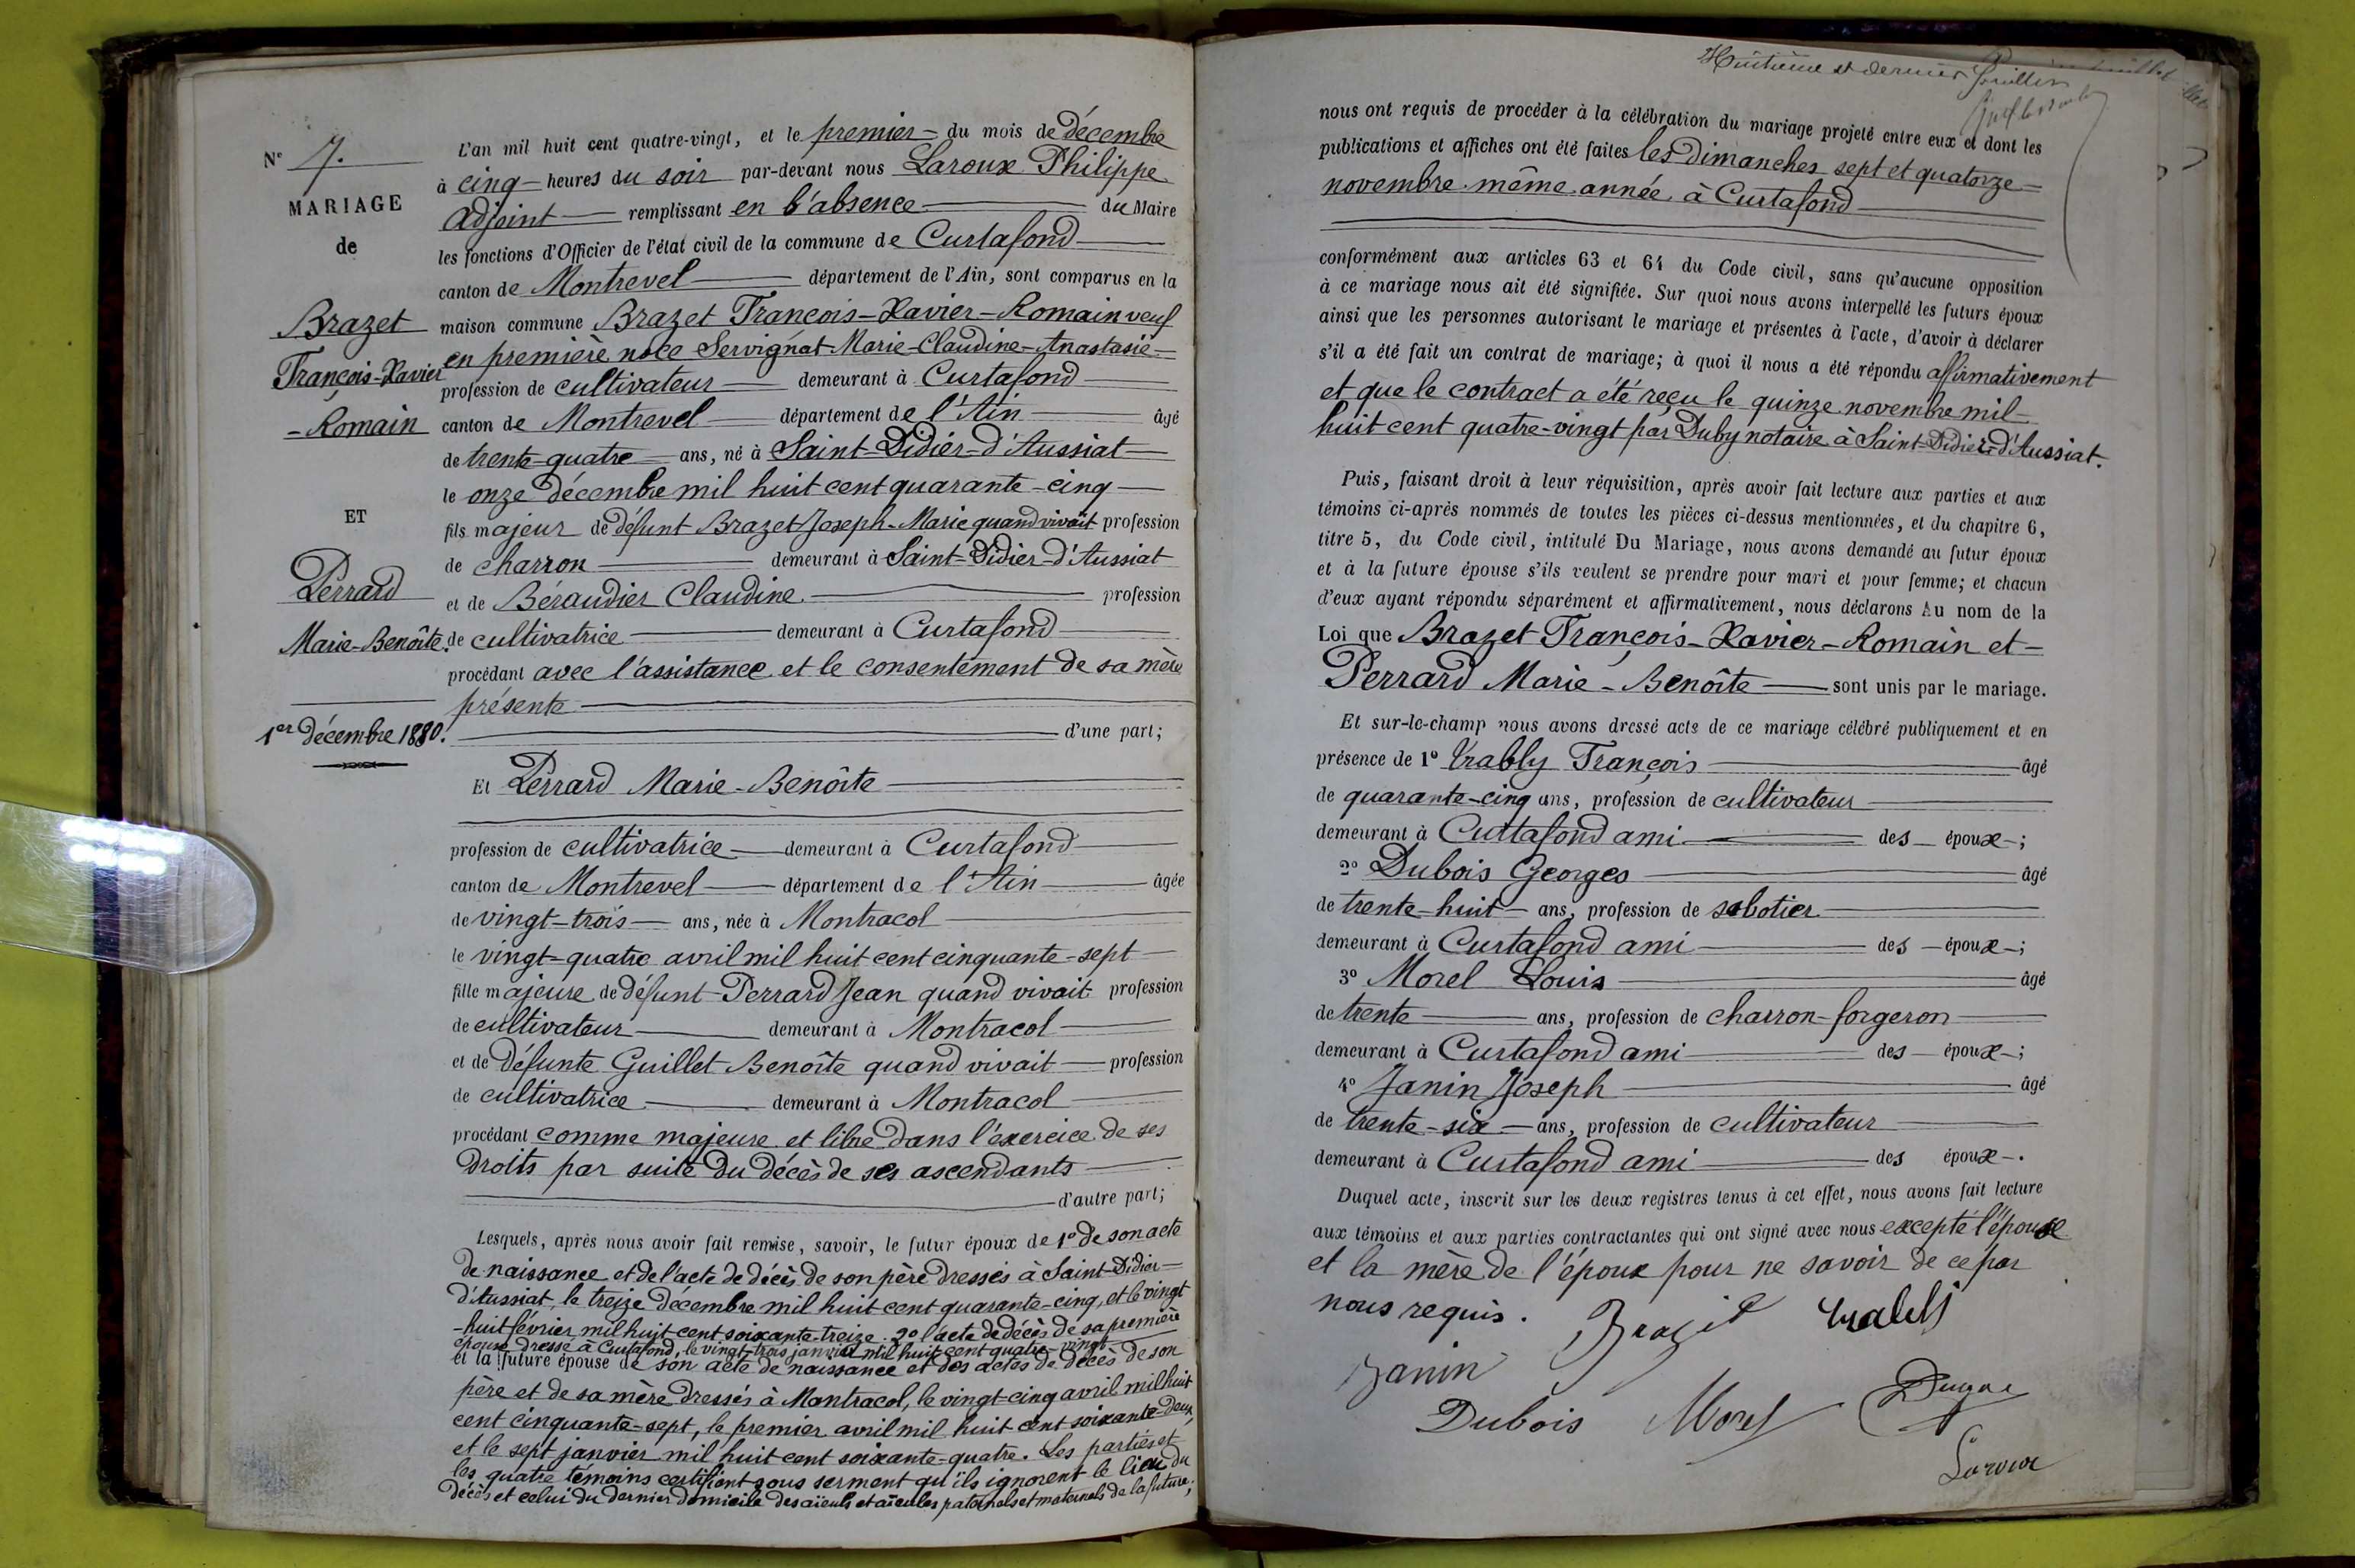 N° 7.
MARIAGE
de
Brazet
François-Xavier
-Romain
ET
Perrard
Marie-Benoîte.
1er décembre 1880.
L'an mil huit cent quatre-vingt, et le premier du mois de décembre
à cinq heures du soir par-devant nous Laroux Philippe
adjoint remplissant en l'absence du Maire
les fonctions d'Officier de l'état civil de la commune de Curtafond
canton de Montrevel département de l'Ain, sont comparus en la
maison commune Brazet François-Xavier-Romain veuf
en première noce Servignat Marie-Claudine-Anastasie
profession de cultivateur demeurant à Curtafond
canton de Montrevel département de l'Ain âgé
de trente-quatre ans, né à Saint-Didier-d'Aussiat
le onze décembre mil huit cent quarante-cinq
fils majeur de défunt Brazet Joseph-Marie quand vivait profession
de charron demeurant à Saint-Didier-d'Aussiat
et de Béraudier Claudine profession
de cultivatrice demeurant à Curtafond
procédant avec l'assistance et le consentement de sa mère
présente
d'une part;
Et Perrard Marie-Benoîte
profession de cultivatrice demeurant à Curtafond
canton de Montrevel département de l'Ain âgée
de vingt-trois ans, née à Montracol
le vingt-quatre avril mil huit cent cinquante-sept
fille majeure de défunt Perrard Jean quand vivait profession
de cultivateur demeurant à Montracol
et de défunte Guillet Benoîte quand vivait profession
de cultivatrice demeurant à Montracol
procédant comme majeure et libre dans l'exercice de ses
droits par suite du décès de ses ascendants
d'autre part;
Lesquels, après nous avoir fait remise, savoir, le futur époux de 1° de son acte
de naissance et de l'acte de décès de son père dressés à Saint-Didier-
d'Aussiat, le treize décembre mil huit cent quarante-cinq, et le vingt
-huit février mil huit cent soixante-treize. 2° l'acte de décès de sa première
épouse dressé à Curtafond, le vingt-trois janvier mil huit cent quatre-vingt
et la future épouse de son acte de naissance et des actes de décès de son
père et de sa mère dressés à Montracol, le vingt-cinq avril mil huit
cent cinquante-sept, le premier avril mil huit cent soixante-deux,
et le sept janvier mil huit cent soixante-quatre. Les parties et
les quatre témoins certifient sous serment qu'ils ignorent le lieu du
décès et celui du dernier domicile des aïeuls et aïeules paternels et maternels de la future;
Huitième et dernier feuillet
nous ont requis de procéder à la célébration du mariage projeté entre eux et dont les
publications et affiches ont été faites les dimanches sept et quatorze
novembre même année à Curtafond
conformément aux articles 63 et 64 du Code civil, sans qu'aucune opposition
à ce mariage nous ait été signifiée. Sur quoi nous avons interpellé les futurs époux
ainsi que les personnes autorisant le mariage et présentes à l'acte, d'avoir à déclarer
s'il a été fait un contrat de mariage; à quoi il nous a été répondu affirmativement
et que le contract a été reçu le quinze novembre mil
huit cent quatre-vingt par Duby notaire à Saint-Didier-d'Aussiat.
Puis, faisant droit à leur réquisition, après avoir fait lecture aux parties et aux
témoins ci-après nommés de toutes les pièces ci-dessus mentionnées, et du chapitre 6,
titre 5, du Code civil, intitulé Du Mariage, nous avons demandé au futur époux
et à la future épouse s'ils veulent se prendre pour mari et pour femme; et chacun
d'eux ayant répondu séparément et affirmativement, nous déclarons Au nom de la
Loi que Brazet François-Xavier-Romain et
Perrard Marie-Benoîte sont unis par le mariage.
Et sur-le-champ nous avons dressé acte de ce mariage célébré publiquement et en
présence de 1° Vrably François âgé
de quarante-cinq ans, profession de cultivateur
demeurant à Curtafond ami des époux;
2° Dubois Georges âgé
de trente-huit ans, profession de sabotier
demeurant à Curtafond ami des époux;
3° Morel Louis âgé
de trente ans, profession de charron-forgeron
demeurant à Curtafond ami des époux;
4° Janin Joseph âgé
de trente-six ans, profession de cultivateur
demeurant à Curtafond ami des époux.
Duquel acte, inscrit sur les deux registres tenus à cet effet, nous avons fait lecture
aux témoins et aux parties contractantes qui ont signé avec nous excepté l'épouse
et la mère de l'époux pour ne savoir de ce par
nous requis. Brazet
Janin
Dubois Morel
Laroux